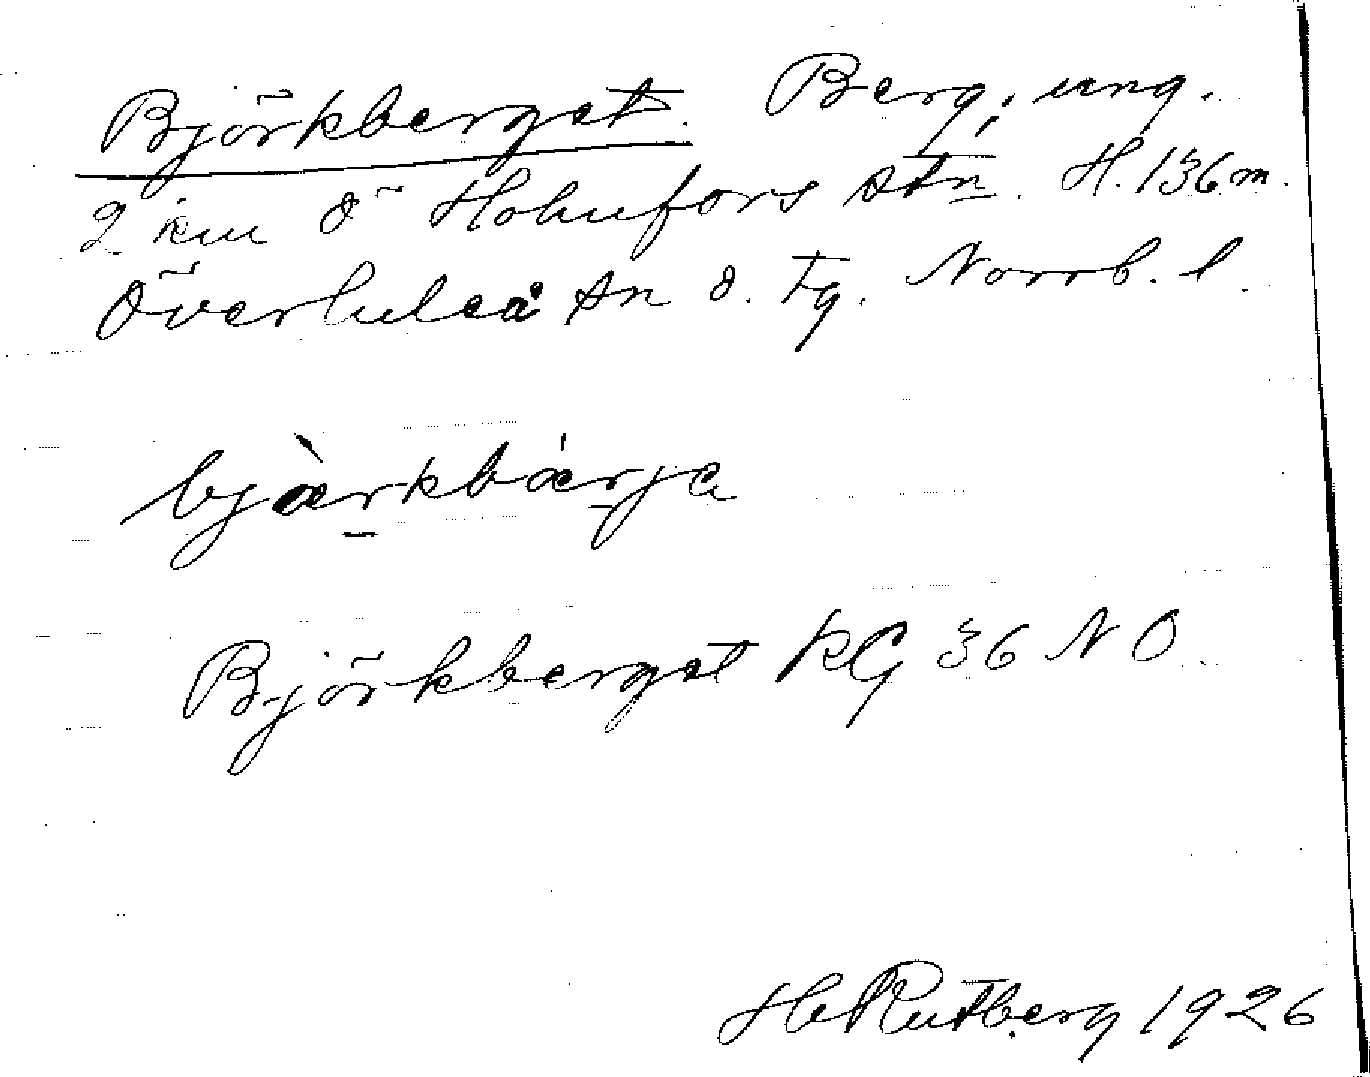 Björkberget. Berg, ung.
2 km ö Holmfors stn. H. 136 m.
Överluleå sn o. tg. Norrb. l.
bjàrkbárja
Björkberget KG 36 NO
H Rutberg 1926